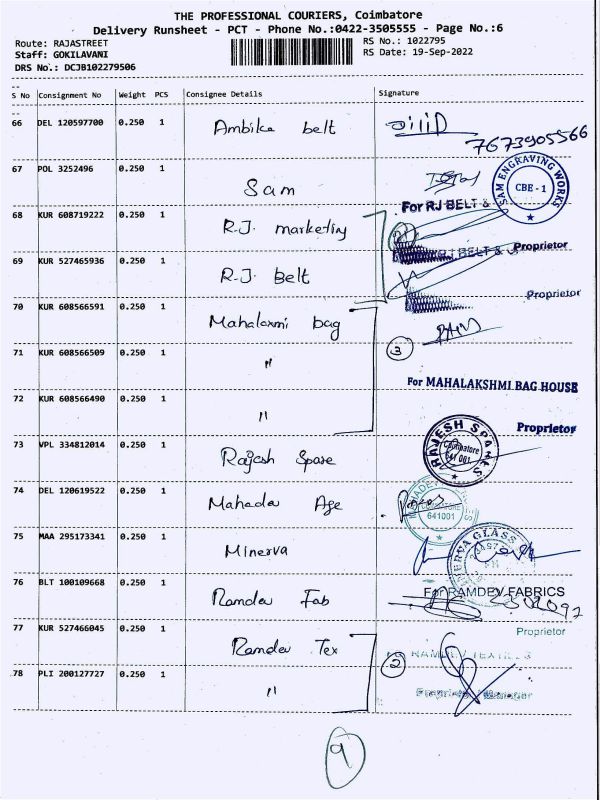 THE PROFESSIONAL COURIERS, Coimbatore
Delivery Runsheet - PCT - Phone No.:0422-3505555 - Page No.:6
Route: RAJASTREET
RS No.: 1022795
Staff: GOKILAVANI
RS Date: 19-Sep-2022
DRS No.: DCJB102279506
S No Consignment No Weight PCS Consignee Details Signature
66 DEL 120597700 0.250 1 Ambika belt
7673905566
67 POL 3252496 0.250 1 Sam
SAM ENGRAVING WORKS
CBE - 1
For RJ BELT &
68 KUR 608719222 0.250 1 R.J. marketing
Proprietor
69 KUR 527465936 0.250 1 R.J. Belt
RJ BELT &
Proprietor
70 KUR 608566591 0.250 1 Mahalaxmi bag
3
71 KUR 608566509 0.250 1 "
For MAHALAKSHMI BAG HOUSE
72 KUR 608566490 0.250 1 "
Proprietor
73 VPL 334812014 0.250 1 Rajesh Spare
RAJESH SPARES
Coimbatore
641 001.
74 DEL 120619522 0.250 1 Mahadev Age
641001
75 MAA 295173341 0.250 1 Minerva
MINERVA GLASS
76 BLT 100109668 0.250 1 Ramdev Fab
For RAMDEV FABRICS
Proprietor
77 KUR 527466045 0.250 1 Ramdev Tex
2
RAMDEV TEXTILES
78 PLI 200127727 0.250 1 "
Manager
9